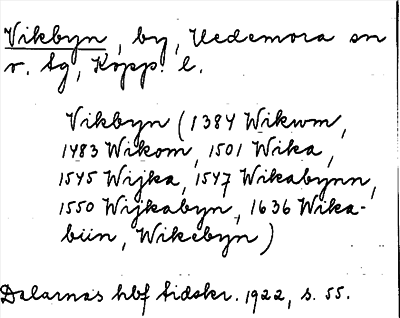 Vikbyn, by, Hedemora sn
v. tg, Kopp. l.
Vikbyn (1384 Wikwm,
1483 Wikom, 1501 Wika,
1545 Wijka, 1547 Wikabynn,
1550 Wijkabyn, 1636 Wika-
biin, Wikebyn)
Dalarnas hbf tidskr. 1922, s. 55.